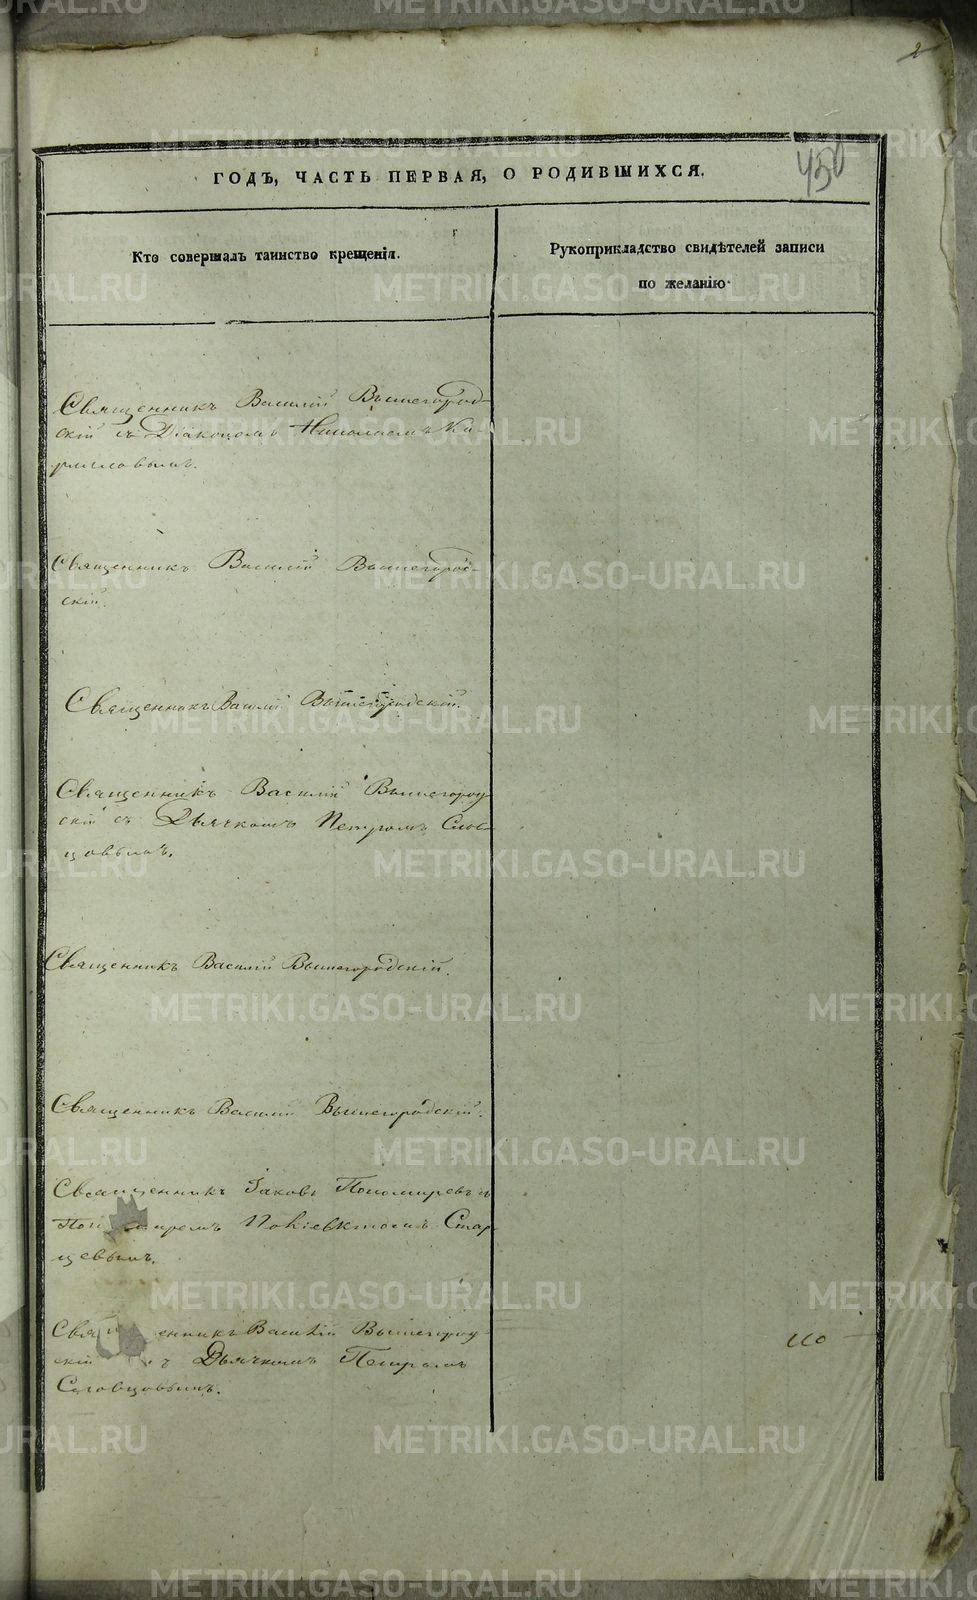 2
450
ГОДЪ, ЧАСТЬ ПЕРВАЯ, О РОДИВШИХСЯ.
Кто совершалъ таинство крещенія.
Рукоприкладство свидѣтелей записи
по желанію
Священникъ Василій Вышегород-
скій съ Діакономъ Николаемъ Ки-
рилловымъ.
Священникъ Василій Вышегород-
скій.
Священникъ Василій Вышегородскій.
Священникъ Василій Вышегород-
скій съ Дьячкомъ Петромъ Слов-
цовымъ.
Священникъ Василій Вышегородскій.
Священникъ Василій Вышегородскій.
Священникъ Іаковъ Пономаревъ съ
Стар-
цевымъ.
Священникъ Василій Вышегород-
скій съ Дьячкомъ Петромъ
Словцовымъ.
METRIKI.GASO-URAL.RU